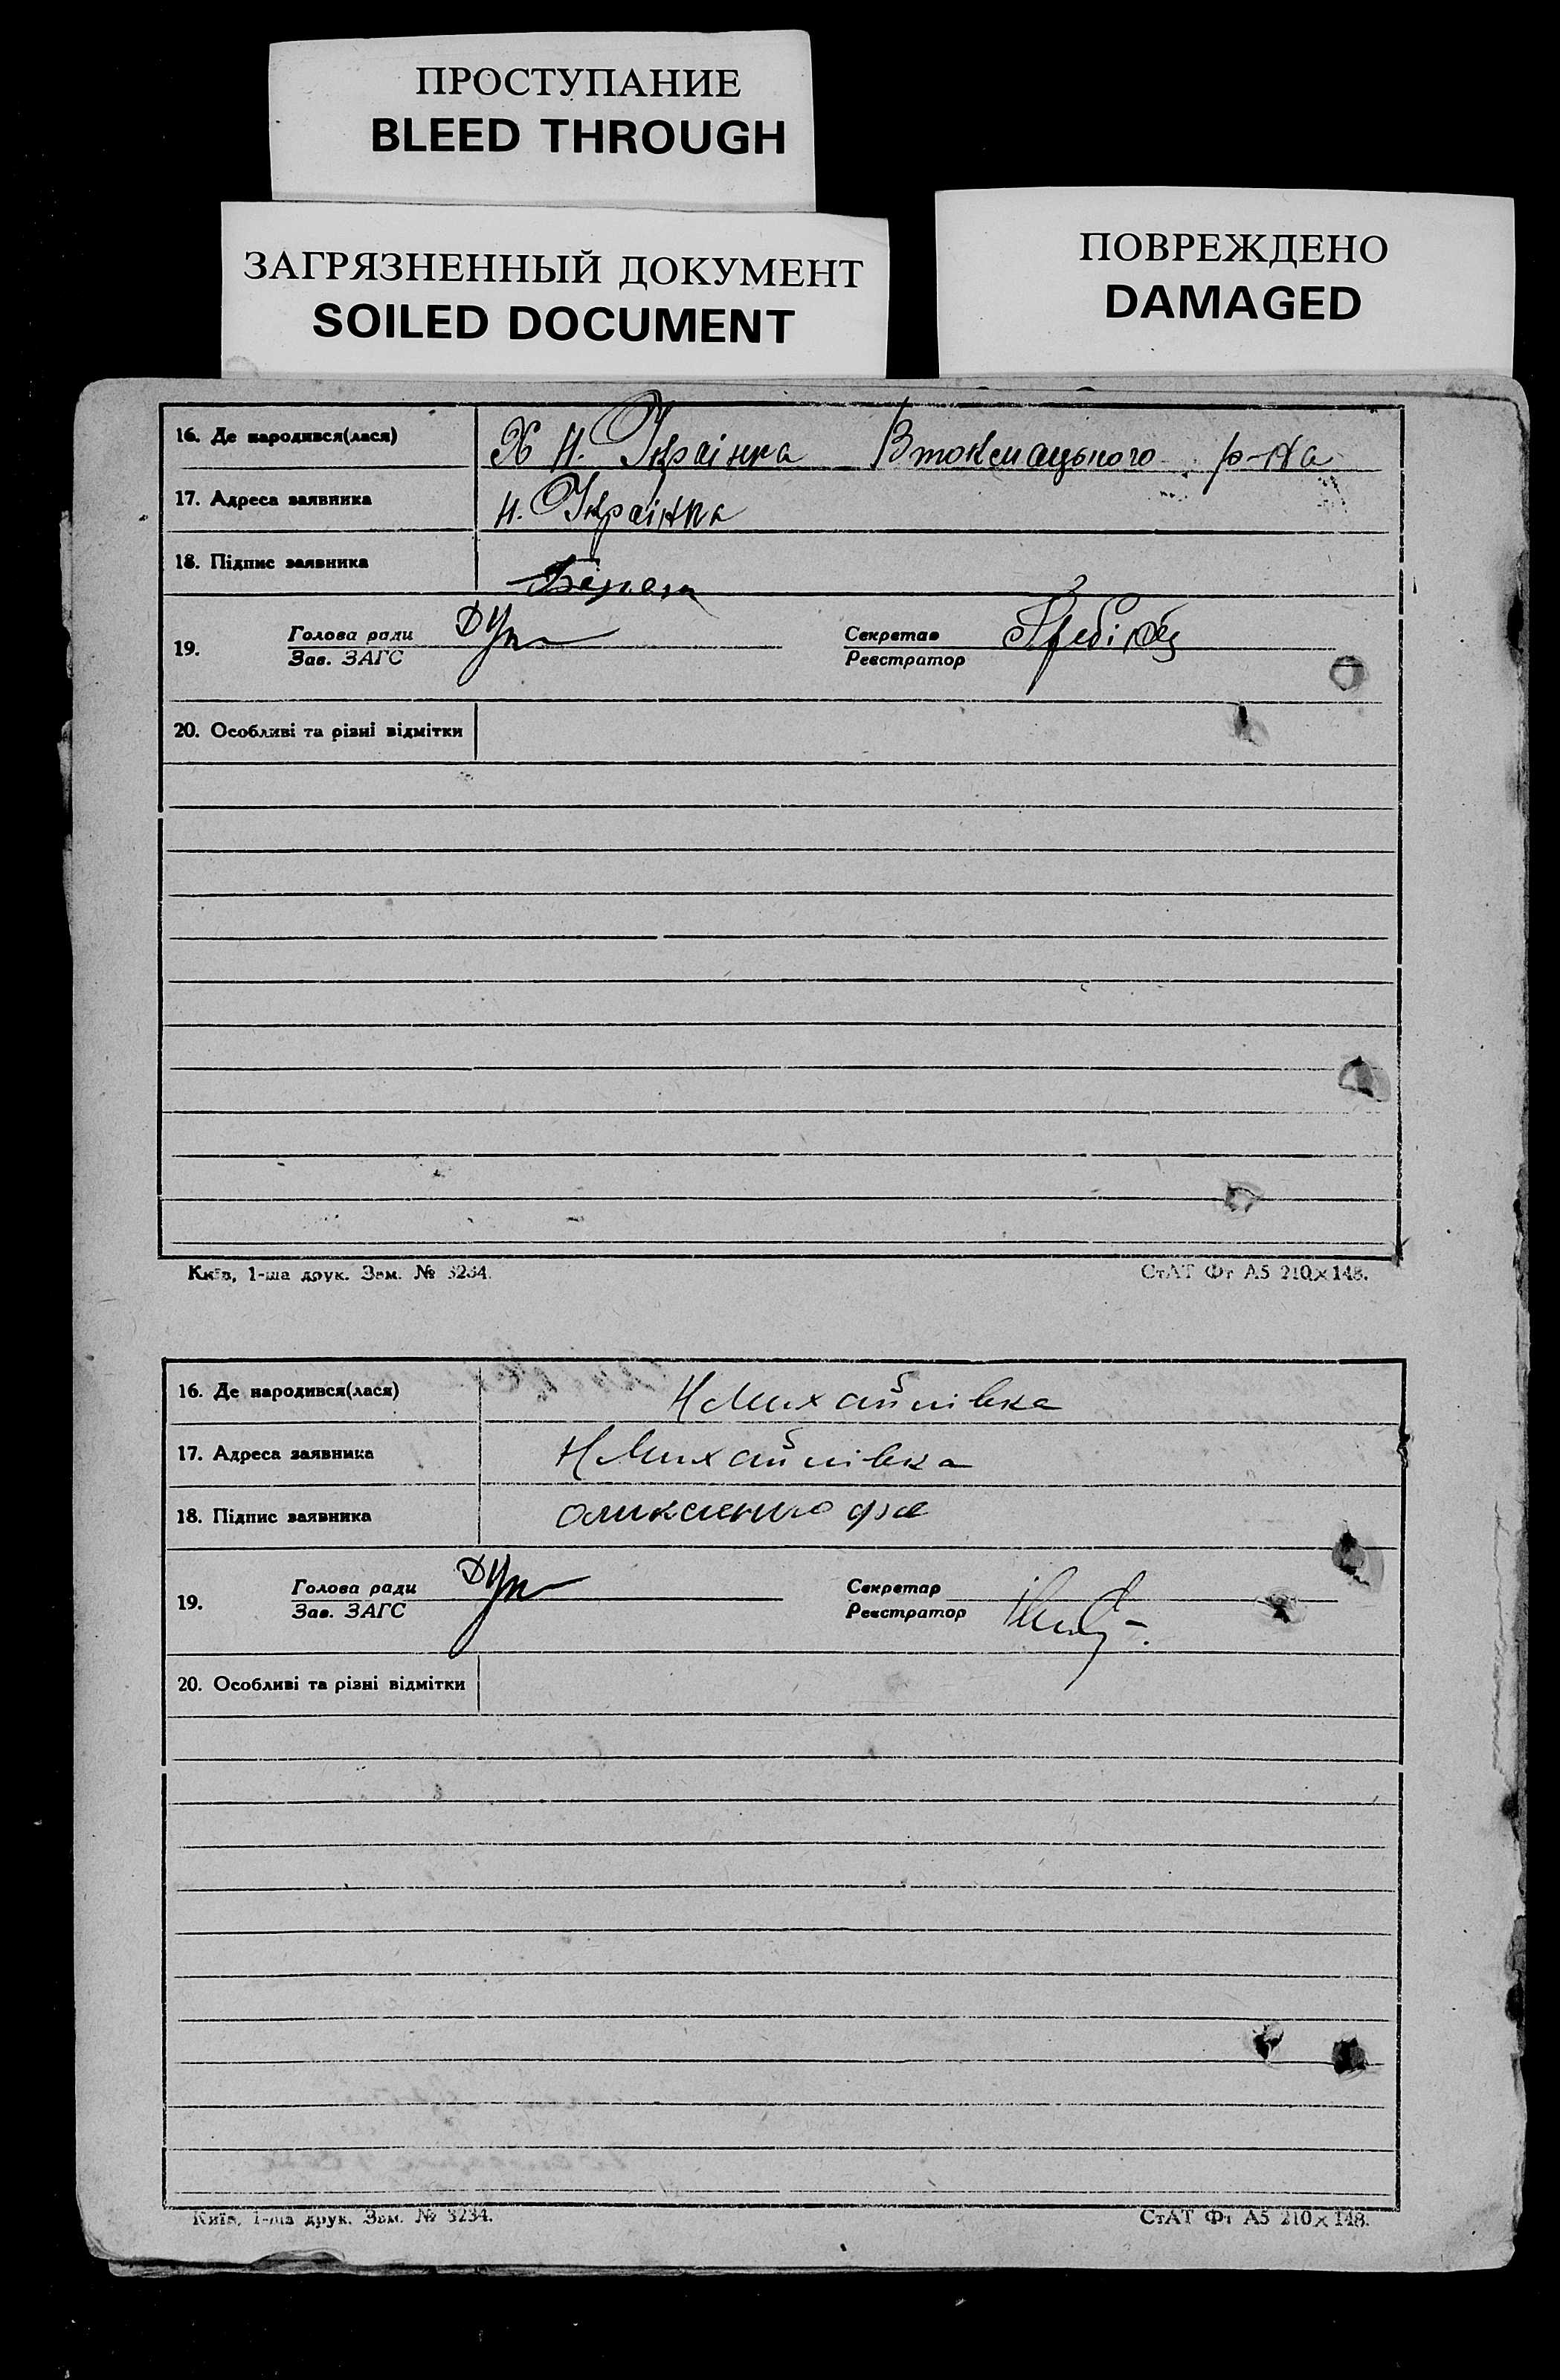 ПРОСТУПАНИЕ
BLEED THROUGH
ЗАГРЯЗНЕННЫЙ ДОКУМЕНТ
SOILED DOCUMENT
ПОВРЕЖДЕНО
DAMAGED
16. Де народився(лася) Х Н. Українка Втокмацького р-на
17. Адреса заявника Н. Українка
18. Підпис заявника
19. Голова ради Секретар
Зав. ЗАГС Реєстратор
20. Особливі та різні відмітки
Київ, 1-ша друк. Зам. № 3234. СтАТ Фт А5 210×148.
16. Де народився(лася) Н Михайлівка
17. Адреса заявника Н Михайлівка
18. Підпис заявника
19. Голова ради Секретар
Зав. ЗАГС Реєстратор
20. Особливі та різні відмітки
Київ, 1-ша друк. Зам. № 3234. СтАТ Фт А5 210×148.